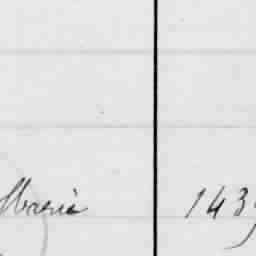 Maria 143